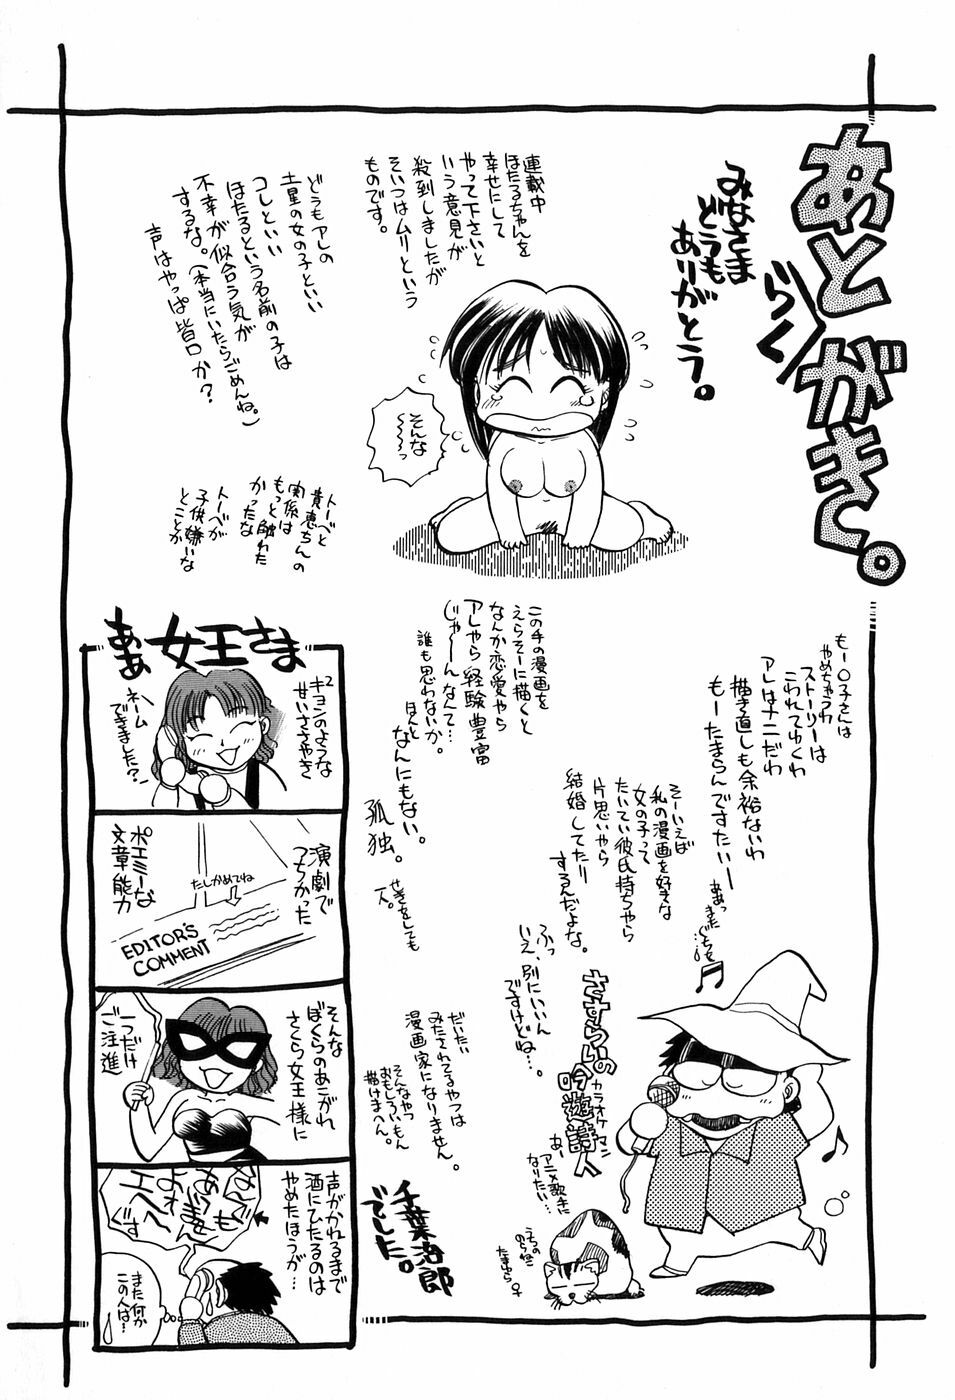 あとがき。
らくがき
みなさま
どうも
ありがとう。
連載中
ほたるちゃんを
幸せにして
やって下さいと
いう意見が
殺到しましたが
そいつはムリという
ものです。
そんな
〜〜〜っ
どうもアレの
土星の女の子といい
コレといい
ほたるという名前の子は
不幸が似合う気が
するな。(本当にいたらごめんね。)
声はやっぱ皆口か?
トーベと
貴恵ちんの
関係は
もっと触れた
かったな
トーベが
子供嫌いな
とことか
もー○子さんは
やめちゃうわ
ストーリーは
こわれてゆくわ
アレはナニだわ
描き直しも余裕ないわ
もーたまらんですたいー
ああっ
また
ぐちを…
この手の漫画を
えらそーに描くと
なんか恋愛やら
アレやら経験豊富
じゃーんなんて…
誰も思わないか。
ほんと
なんにもない。
孤独。
せきをしても
一人。
そーいえば
私の漫画を好きな
女の子って
たいてい彼氏持ちやら
片思いやら
結婚してたり
するんだよな。
ふっ
いえ、別にいいん
ですけどね。
さすらいの
吟遊詩人
カラオケマン
あー
アニメ歌手に
なりたい…
うちの
のら猫
たまゆら♀
だいたい
みたされてるやつは
漫画家になりません。
そんなやつ
おもしろいもん
描けまへん。
千葉治郎
でした。
ああ女王さま
キョン²のような
甘いささやき
ネーム
できました?
演劇で
つちかった
ポエミーな
文章能力
たしかめてね
EDITOR'S
COMMENT
そんな
ぼくらのあこがれ
さくら女王様に
一つだけ
ご注進
声がかれるまで
酒にひたるのは
やめたほうが…
また何か
この人は…